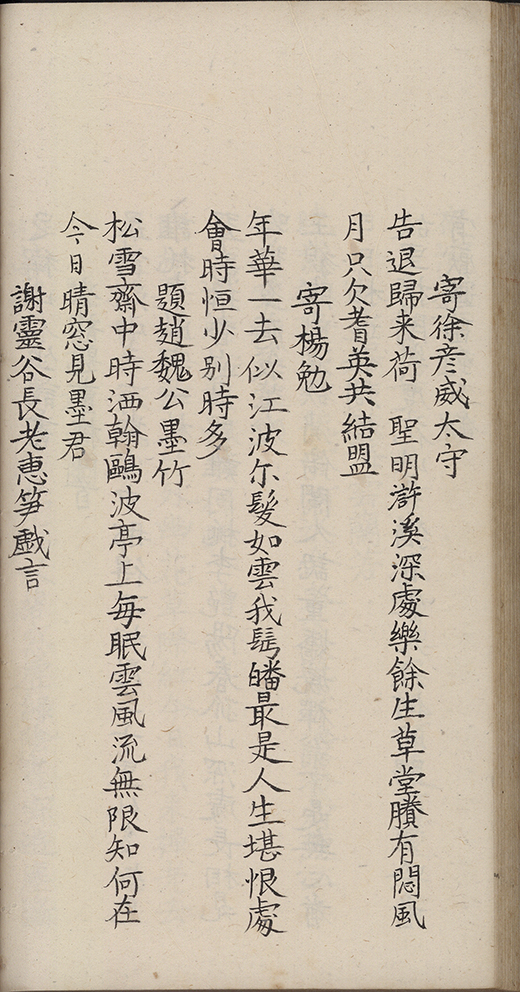 寄徐彦威太守
告退歸来荷　聖明滸溪深處樂餘生草堂賸有閟風
月只欠耆英共結盟
寄楊勉
年華一去似江波尔髮如雲我髩皤最是人生堪恨處
會時恒少别時多
題趙魏公墨竹
松雪齋中時洒翰鷗波亭上每眠雲風流無限知何在
今日晴窓見墨君
謝靈谷長老惠笋戯言